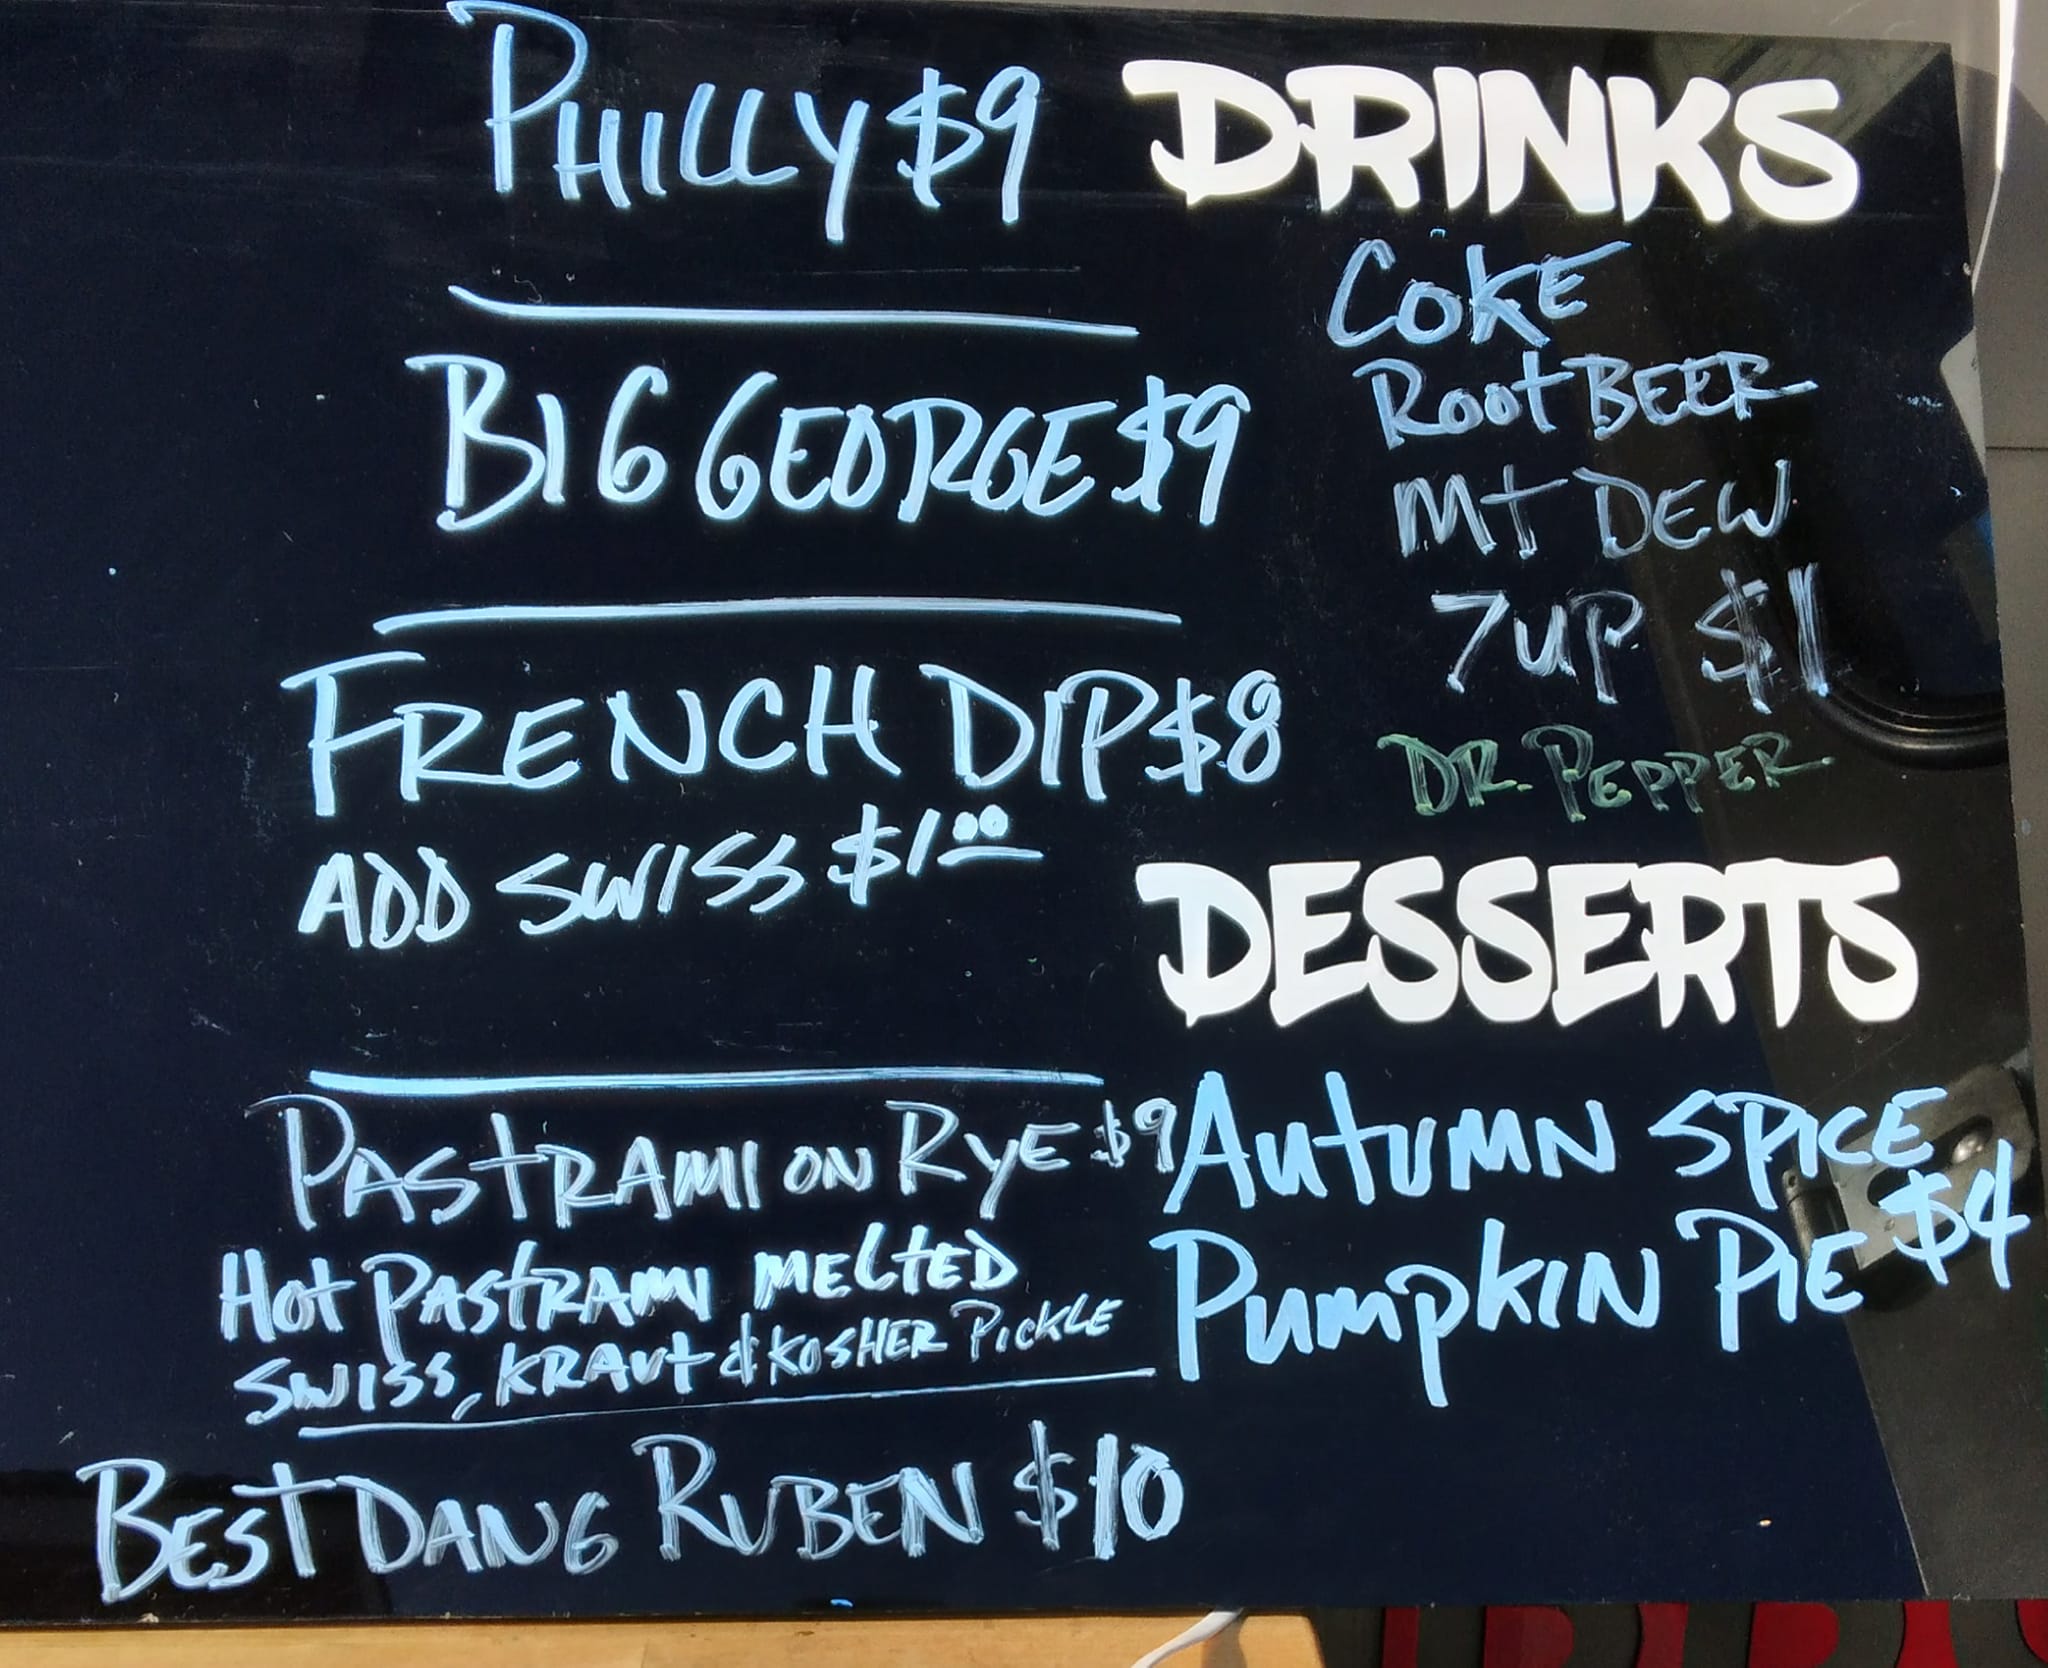 PHILLY $9
BIG GEORGE $9
FRENCH DIP $8
ADD SWISS $1.00
PASTRAMI ON RYE $9
HOT PASTRAMI MELTED
SWISS, KRAUT & KOSHER PICKLE
BEST DANG RUBEN $10
DRINKS
COKE
ROOT BEER
Mt DEW
7UP $1
DR. PEPPER
DESSERTS
AUTUMN SPICE
PUMPKIN PIE $4